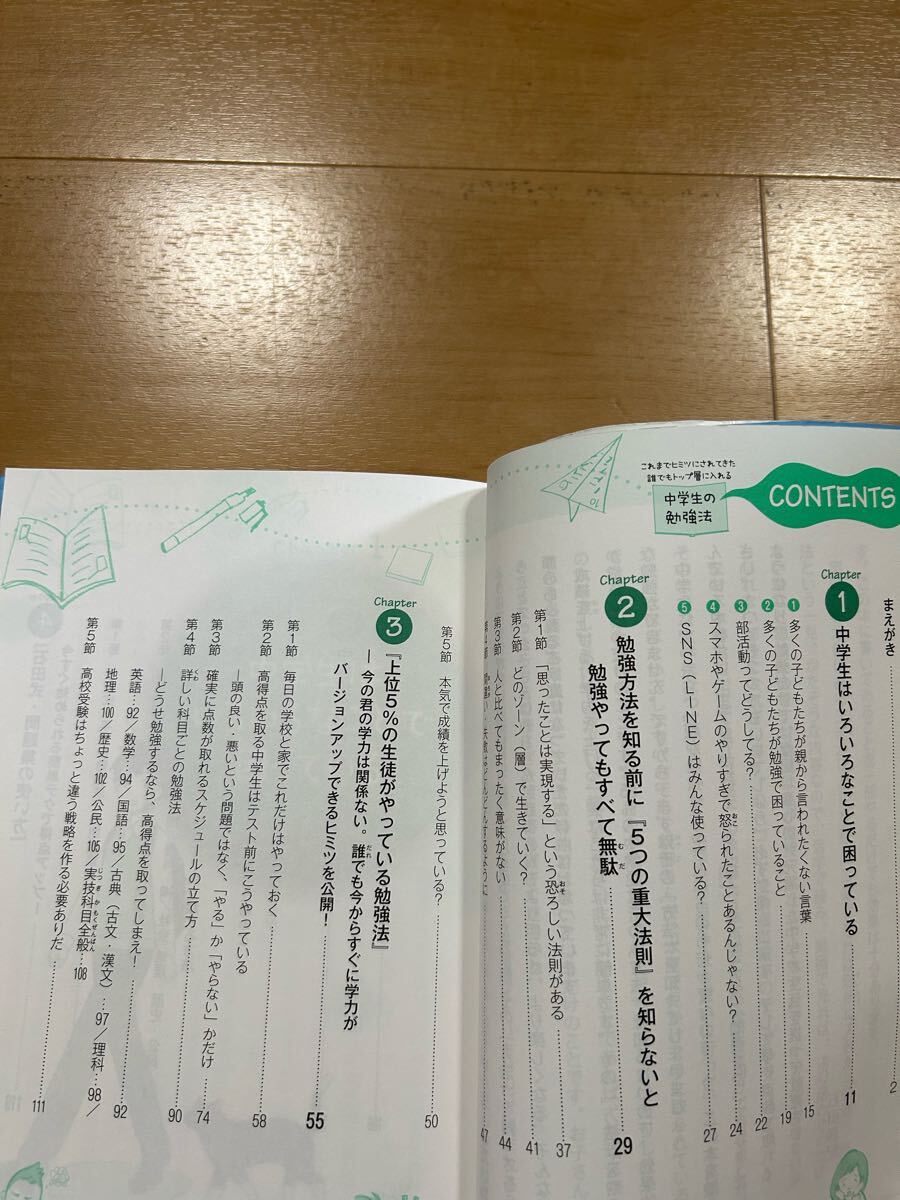 CONTENTS
これまでヒミツにされてきた
誰でもトップ層に入れる
中学生の
勉強法
まえがき 2
Chapter
1 中学生はいろいろなことで困っている 11
❶ 多くの子どもたちが親から言われたくない言葉 15
❷ 多くの子どもたちが勉強で困っていること 19
❸ 部活動ってどうしてる? 22
❹ スマホやゲームのやりすぎで怒られたことあるんじゃない? 24
❺ SNS(LINE)はみんな使っている? 27
Chapter
2 勉強方法を知る前に『5つの重大法則』を知らないと
勉強やってもすべて無駄 29
第1節 「思ったことは実現する」という恐ろしい法則がある 37
第2節 どのゾーン(層)で生きていく? 41
第3節 人と比べてもまったく意味がない 44
47
第5節 本気で成績を上げようと思っている? 50
Chapter
3 『上位5%の生徒がやっている勉強法』
―今の君の学力は関係ない。誰でも今からすぐに学力が
バージョンアップできるヒミツを公開! 55
第1節 毎日の学校と家でこれだけはやっておく 58
第2節 高得点を取る中学生はテスト前にこうやっている
―頭の良い・悪いという問題ではなく、「やる」か「やらない」かだけ 74
第3節 確実に点数が取れるスケジュールの立て方 90
第4節 詳しい科目ごとの勉強法
―どうせ勉強するなら、高得点を取ってしまえ! 92
英語…92/数学…94/国語…95/古典(古文・漢文)…97/理科…98/
地理…100/歴史…102/公民…105/実技科目全般…108
第5節 高校受験はちょっと違う戦略を作る必要ありだ 111